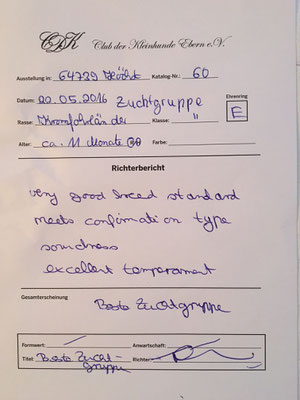 CDK Club der Kleinhunde Ebern e.V.
Ausstellung in: 64739 Höchst Katalog-Nr.: 60
Datum: 20.05.2016 Zuchtgruppe
Ehrenring
Rasse: Kromfohrländer Klasse: "
E
Alter: ca. 11 Monate Farbe:
Richterbericht
very good bread standard
meets confirmation type
soundness
excellent temperament
Gesamterscheinung
Beste Zuchtgruppe
Formwert: Anwartschaft:
Titel: Beste Zucht-
gruppe Richter: